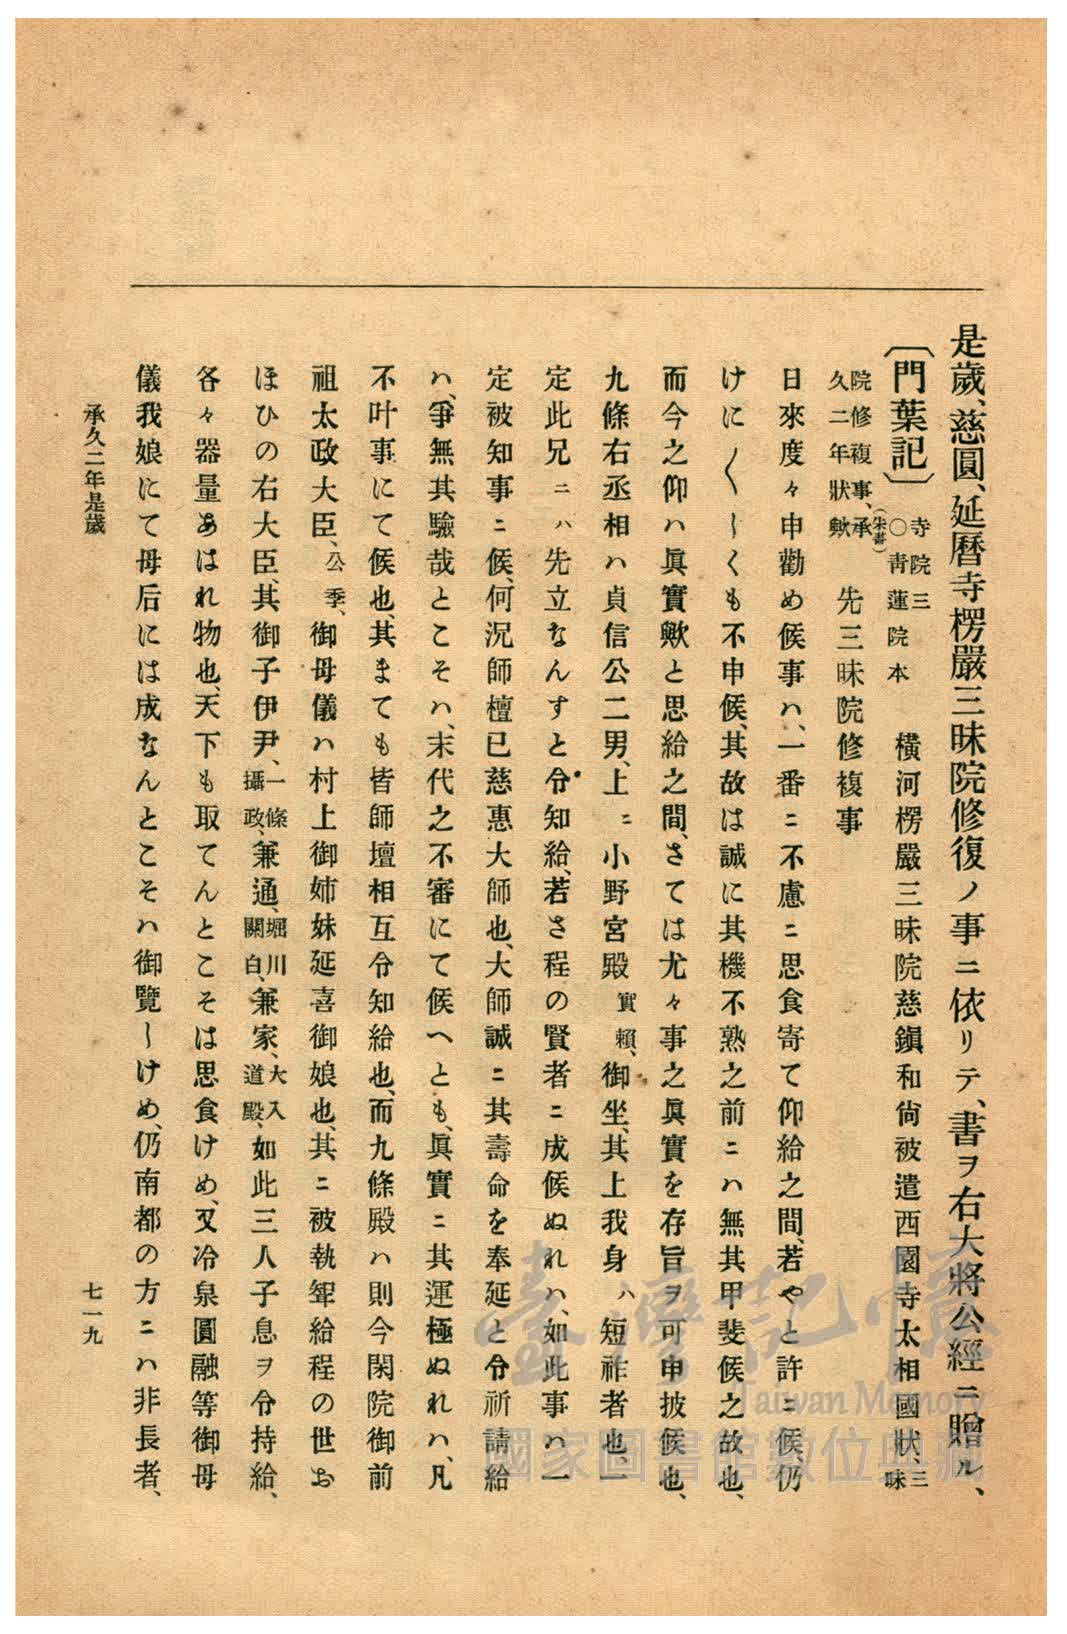 是歲、慈圓、延曆寺楞嚴三昧院修復ノ事ニ依リテ、書ヲ右大將公經ニ贈ル、
〔門葉記〕 寺院三 〇靑蓮院本 橫河楞嚴三昧院慈鎭和尙被遣西園寺太相國狀、三昧
院修複事、承久二年狀歟(朱書) 先三昧院修複事
日來度々申勸め候事ハ、一番ニ不慮ニ思食寄て仰給之間、若やと許ニ候、仍
けに〳〵しくも不申候、其故は誠に其機不熟之前ニハ無其甲斐候之故也、
而今之仰ハ眞實歟と思給之間、さては尤々事之眞實を存旨ヲ可申披候也、
九條右丞相ハ貞信公二男、上ニ小野宮殿實賴、御坐、其上我身ハ短祚者也、一
定此兄ニハ先立なんすと令知給、若さ程の賢者ニ成候ぬれハ、如此事ハ一
定被知事ニ候、何況師檀已慈惠大師也、大師誠ニ其壽命を奉延と令祈請給
ハ、爭無其驗哉とこそハ、末代之不審にて候へとも、眞實ニ其運極ぬれハ、凡
不叶事にて候也、其まても皆師壇相互令知給也、而九條殿ハ則今閑院御前
祖太政大臣、公季、御母儀ハ村上御姉妹延喜御娘也、其ニ被執聟給程の世お
ほひの右大臣、其御子伊尹、一條攝政、兼通、堀川關白、兼家、大入道殿、如此三人子息ヲ令持給、
各々器量あはれ物也、天下も取てんとこそは思食けめ、又冷泉圓融等御母
儀我娘にて母后には成なんとこそハ御覽しけめ、仍南都の方ニハ非長者、
承久二年是歲
七一九
臺灣記憶
Taiwan Memory
國家圖書館數位典藏